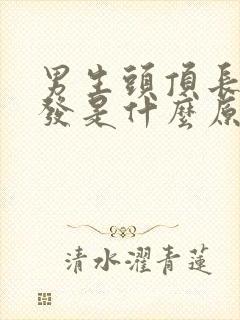 男生頭頂長
發是什麼原
清水濯青蓮